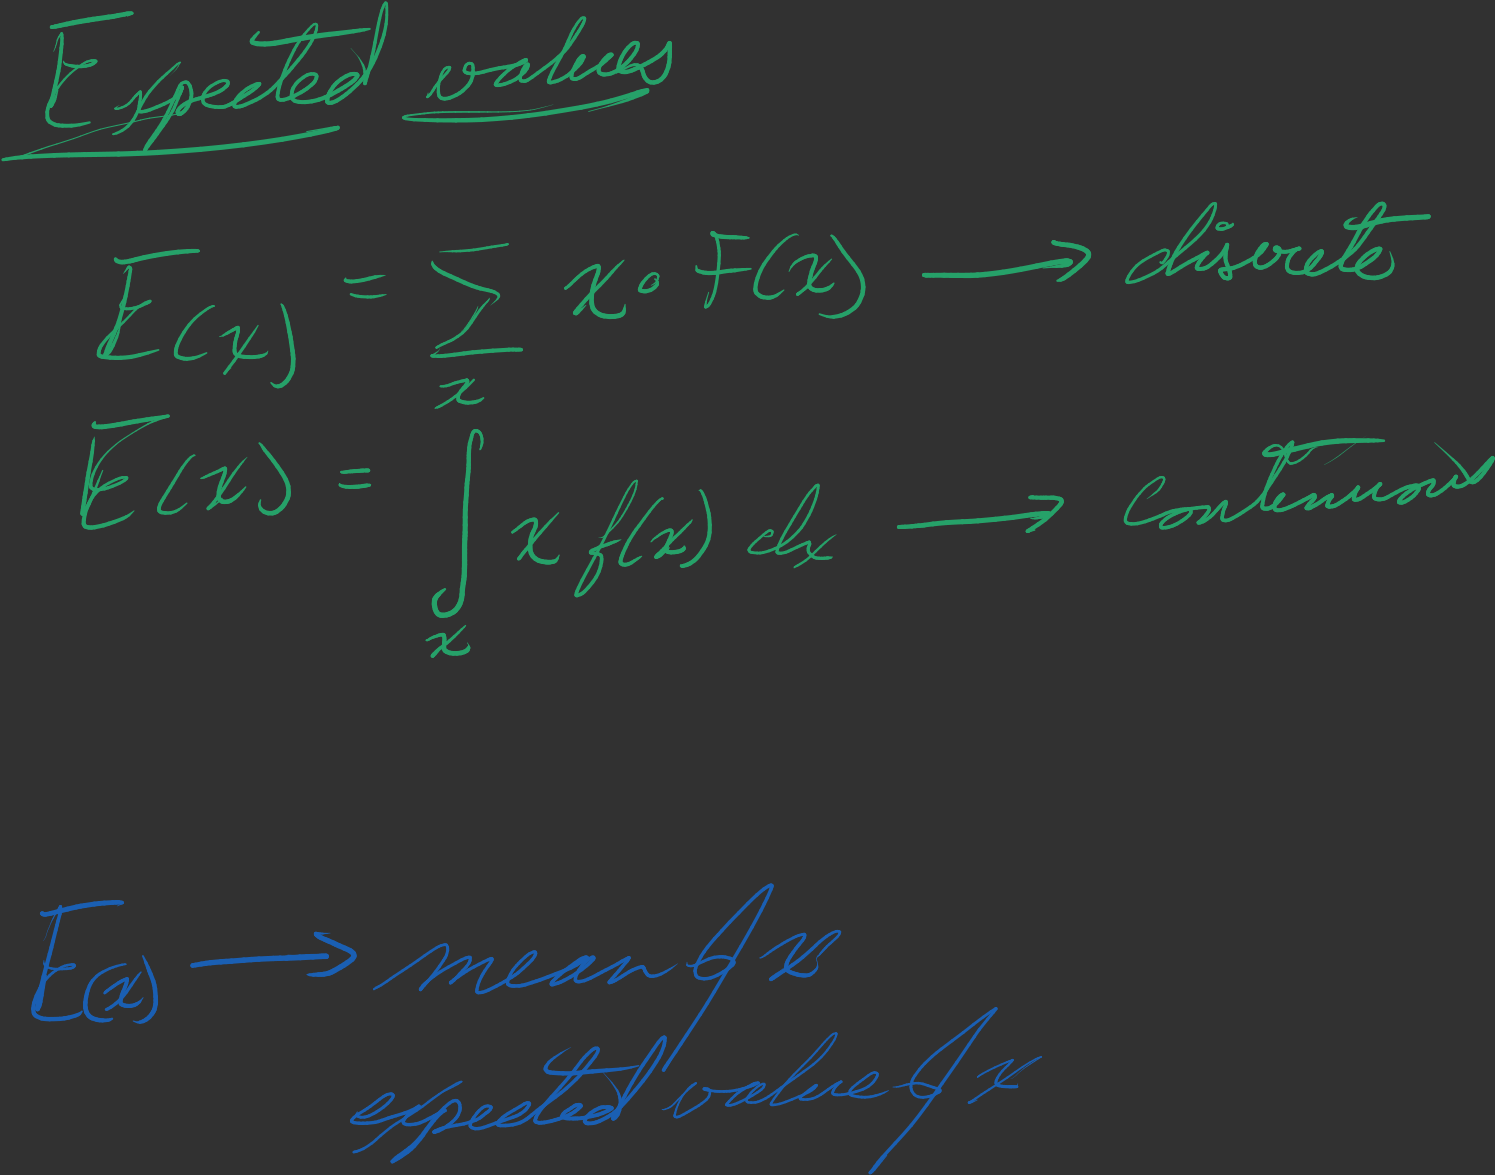 Expected values
E(x) = ∑ x · F(x) → discrete
x
E(x) = ∫ x f(x) dx → Continuous
x
E(x) → mean of x
expected value of x